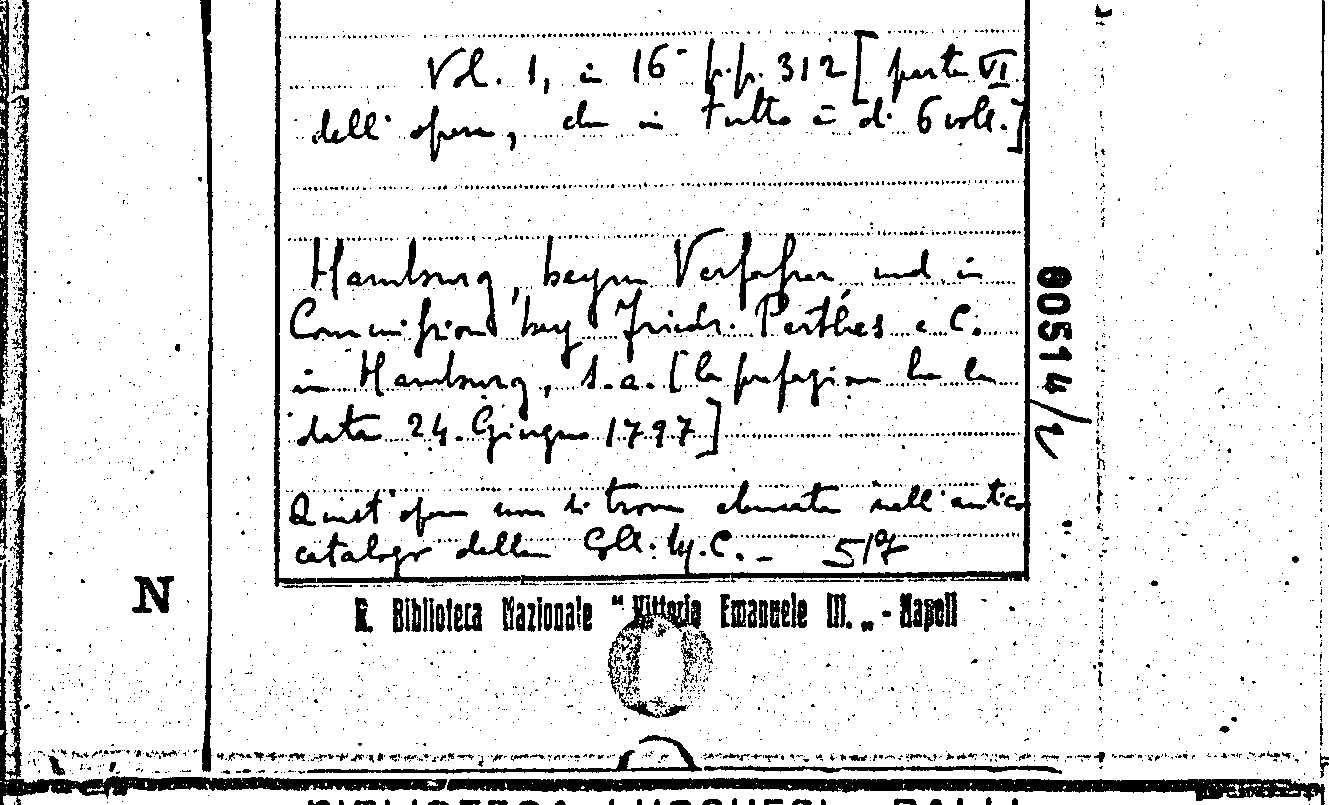 Vol. 1, in 16° p.p. 312 [parte VI
dell'opera, che in tutto è di 6 voll.]
Hamburg, beym Verfasser und in
Commission bey Friedr. Perthes e C.
in Hamburg, s.a. [la prefazione ha la
data 24 Giugno 1797]
Quest'opera non si trova elencata nell'antico
catalogo della Coll. C. 517
00514/2
N
R. Biblioteca Nazionale "Vittorio Emanuele III." - Napoli
BIBLIOTECA LUCCHESI - PALLI